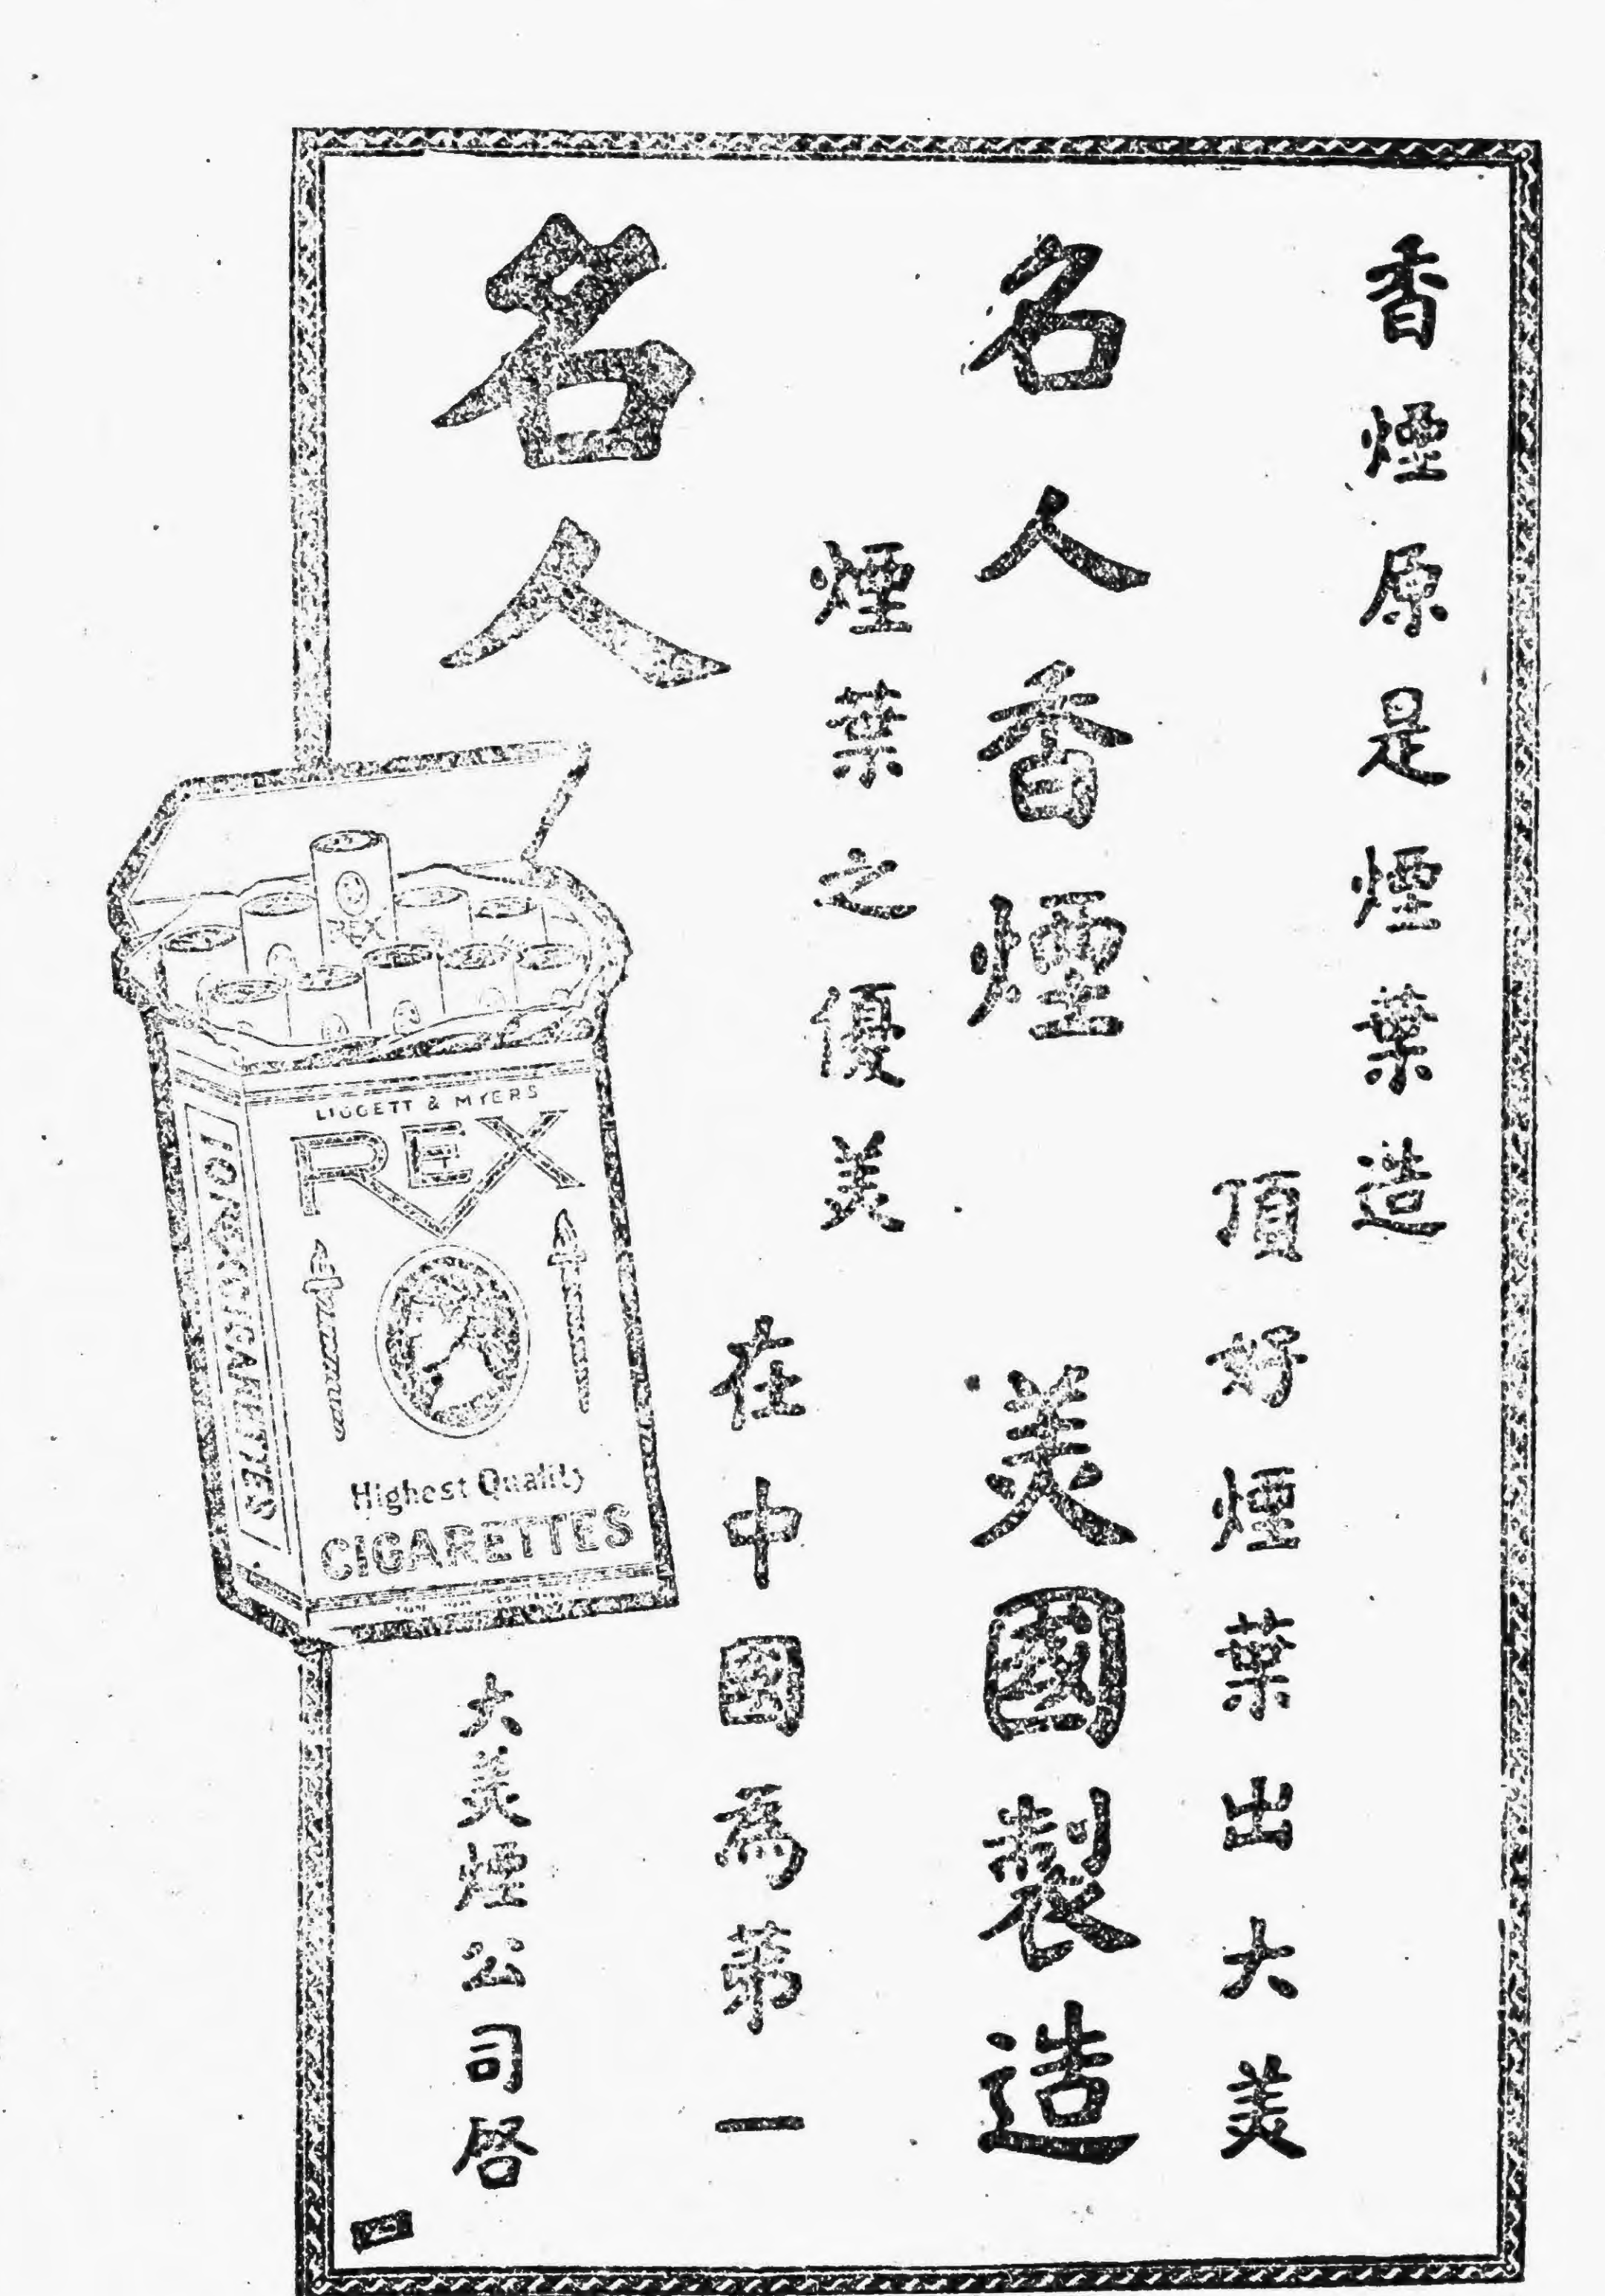 香煙原是煙葉造
頂好煙葉出大美
名人香煙
美國製造
煙葉之優美
在中國為第一
名人
REX
LIGGETT & MYERS
REX
Highest Quality
CIGARETTES
CIGARETTES
大美煙公司啓